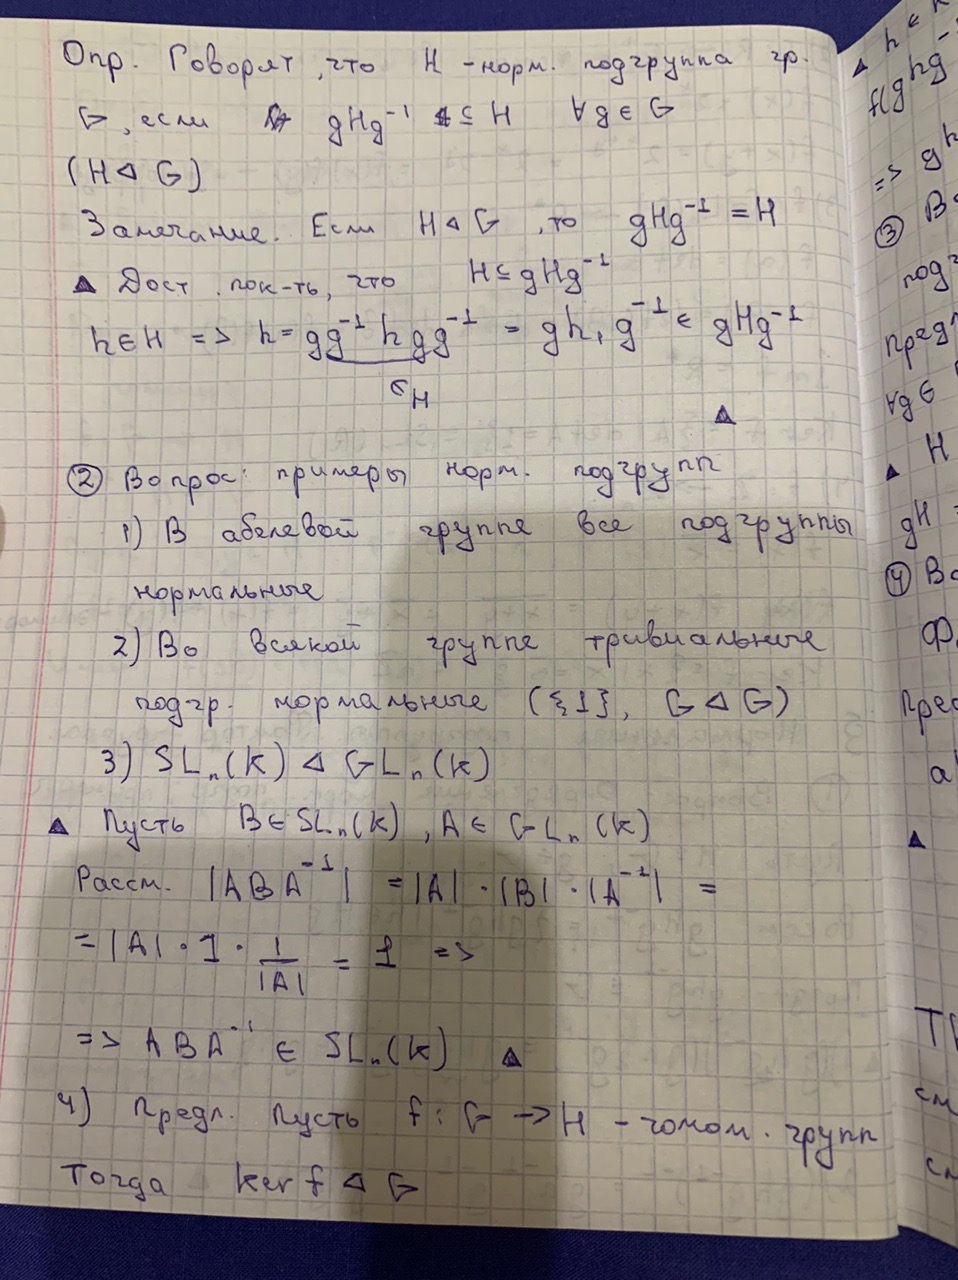 Опр. Говорят, что H - норм. подгруппа гр.
G, если gHg⁻¹ ⊆ H ∀g ∈ G
(H ⊲ G)
Замечание. Если H ⊲ G, то gHg⁻¹ = H
▲ Дост. пок-ть, что H ⊆ gHg⁻¹
h ∈ H => h = gg⁻¹hgg⁻¹ = gh₁g⁻¹ ∈ gHg⁻¹
∈H
▲
② Вопрос: примеры норм. подгрупп
1) В абелевой группе все подгруппы
нормальные
2) Во всякой группе тривиальные
подгр. нормальные ({1}, G ⊲ G)
3) SLₙ(K) ⊲ GLₙ(K)
▲ Пусть B ∈ SLₙ(K), A ∈ GLₙ(K)
Рассм. |ABA⁻¹| = |A| · |B| · |A⁻¹| =
= |A| · 1 · 1/|A| = 1 =>
=> ABA⁻¹ ∈ SLₙ(K) ▲
4) Предл. Пусть f: G -> H - гомом. групп
Тогда ker f ⊲ G
▲ h ∈ K
f(ghg⁻
=> gh
③ Во
под
Пред
∀g ∈
▲ H
gH =
④ Во
Ф
Пред
a
▲
см